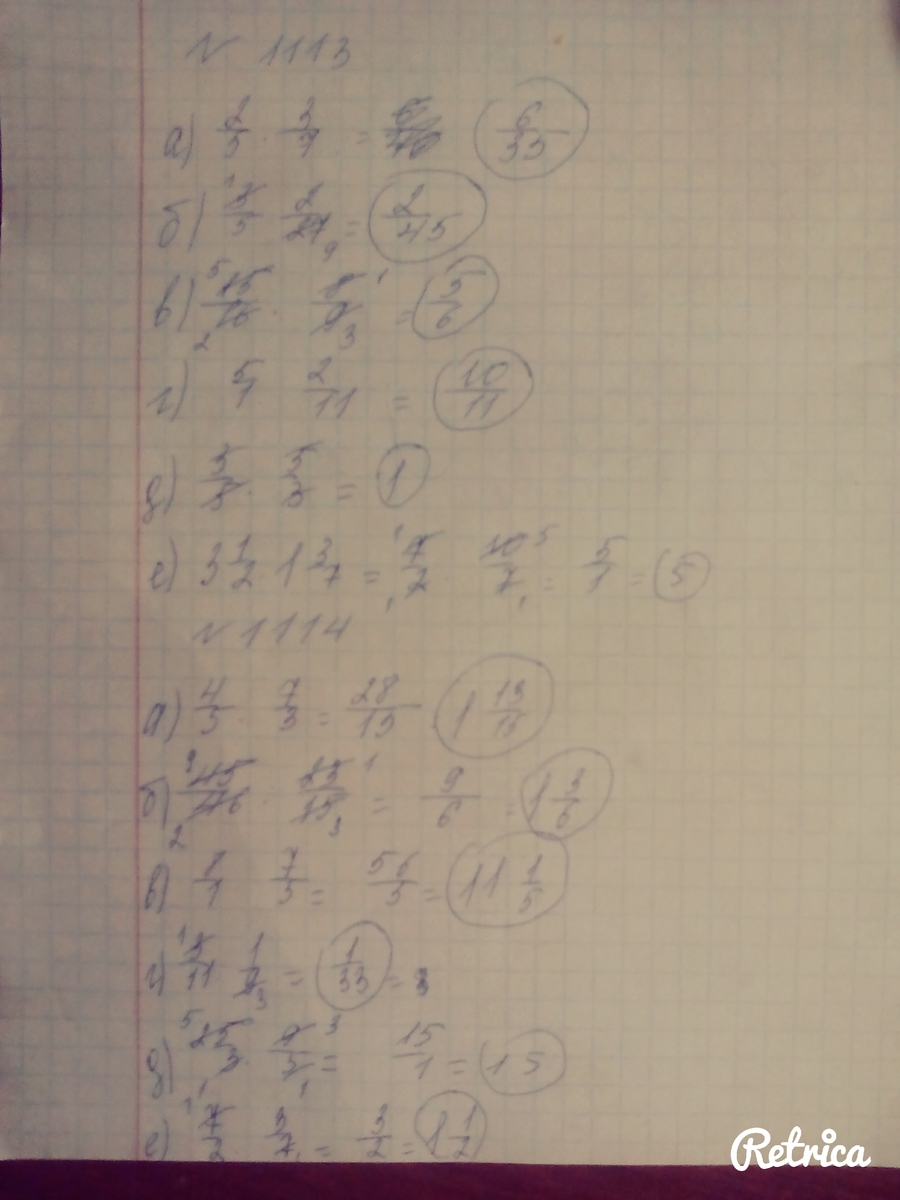 № 1113
а) 2/5 · 3/7 = 6/35
б) 3/5 2/27 = 2/45
в) 15/16 · 8/9 = 5/6
г) 5/1 2/11 = 10/11
д) 3/5 · 5/3 = 1
е) 3 1/2 1 3/7 = 7/2 · 10/7 = 5/1 = 5
№ 1114
а) 4/5 7/3 = 28/15 1 13/15
б) = 9/6 = 1 3/6
в) 8/1 7/5 = 56/5 = 11 1/5
г) 3/11 1/9 = 1/33
д) 25/3 9/5 = 15/1 = 15
е) 7/2 3/7 = 3/2 = 1 1/2
Retrica